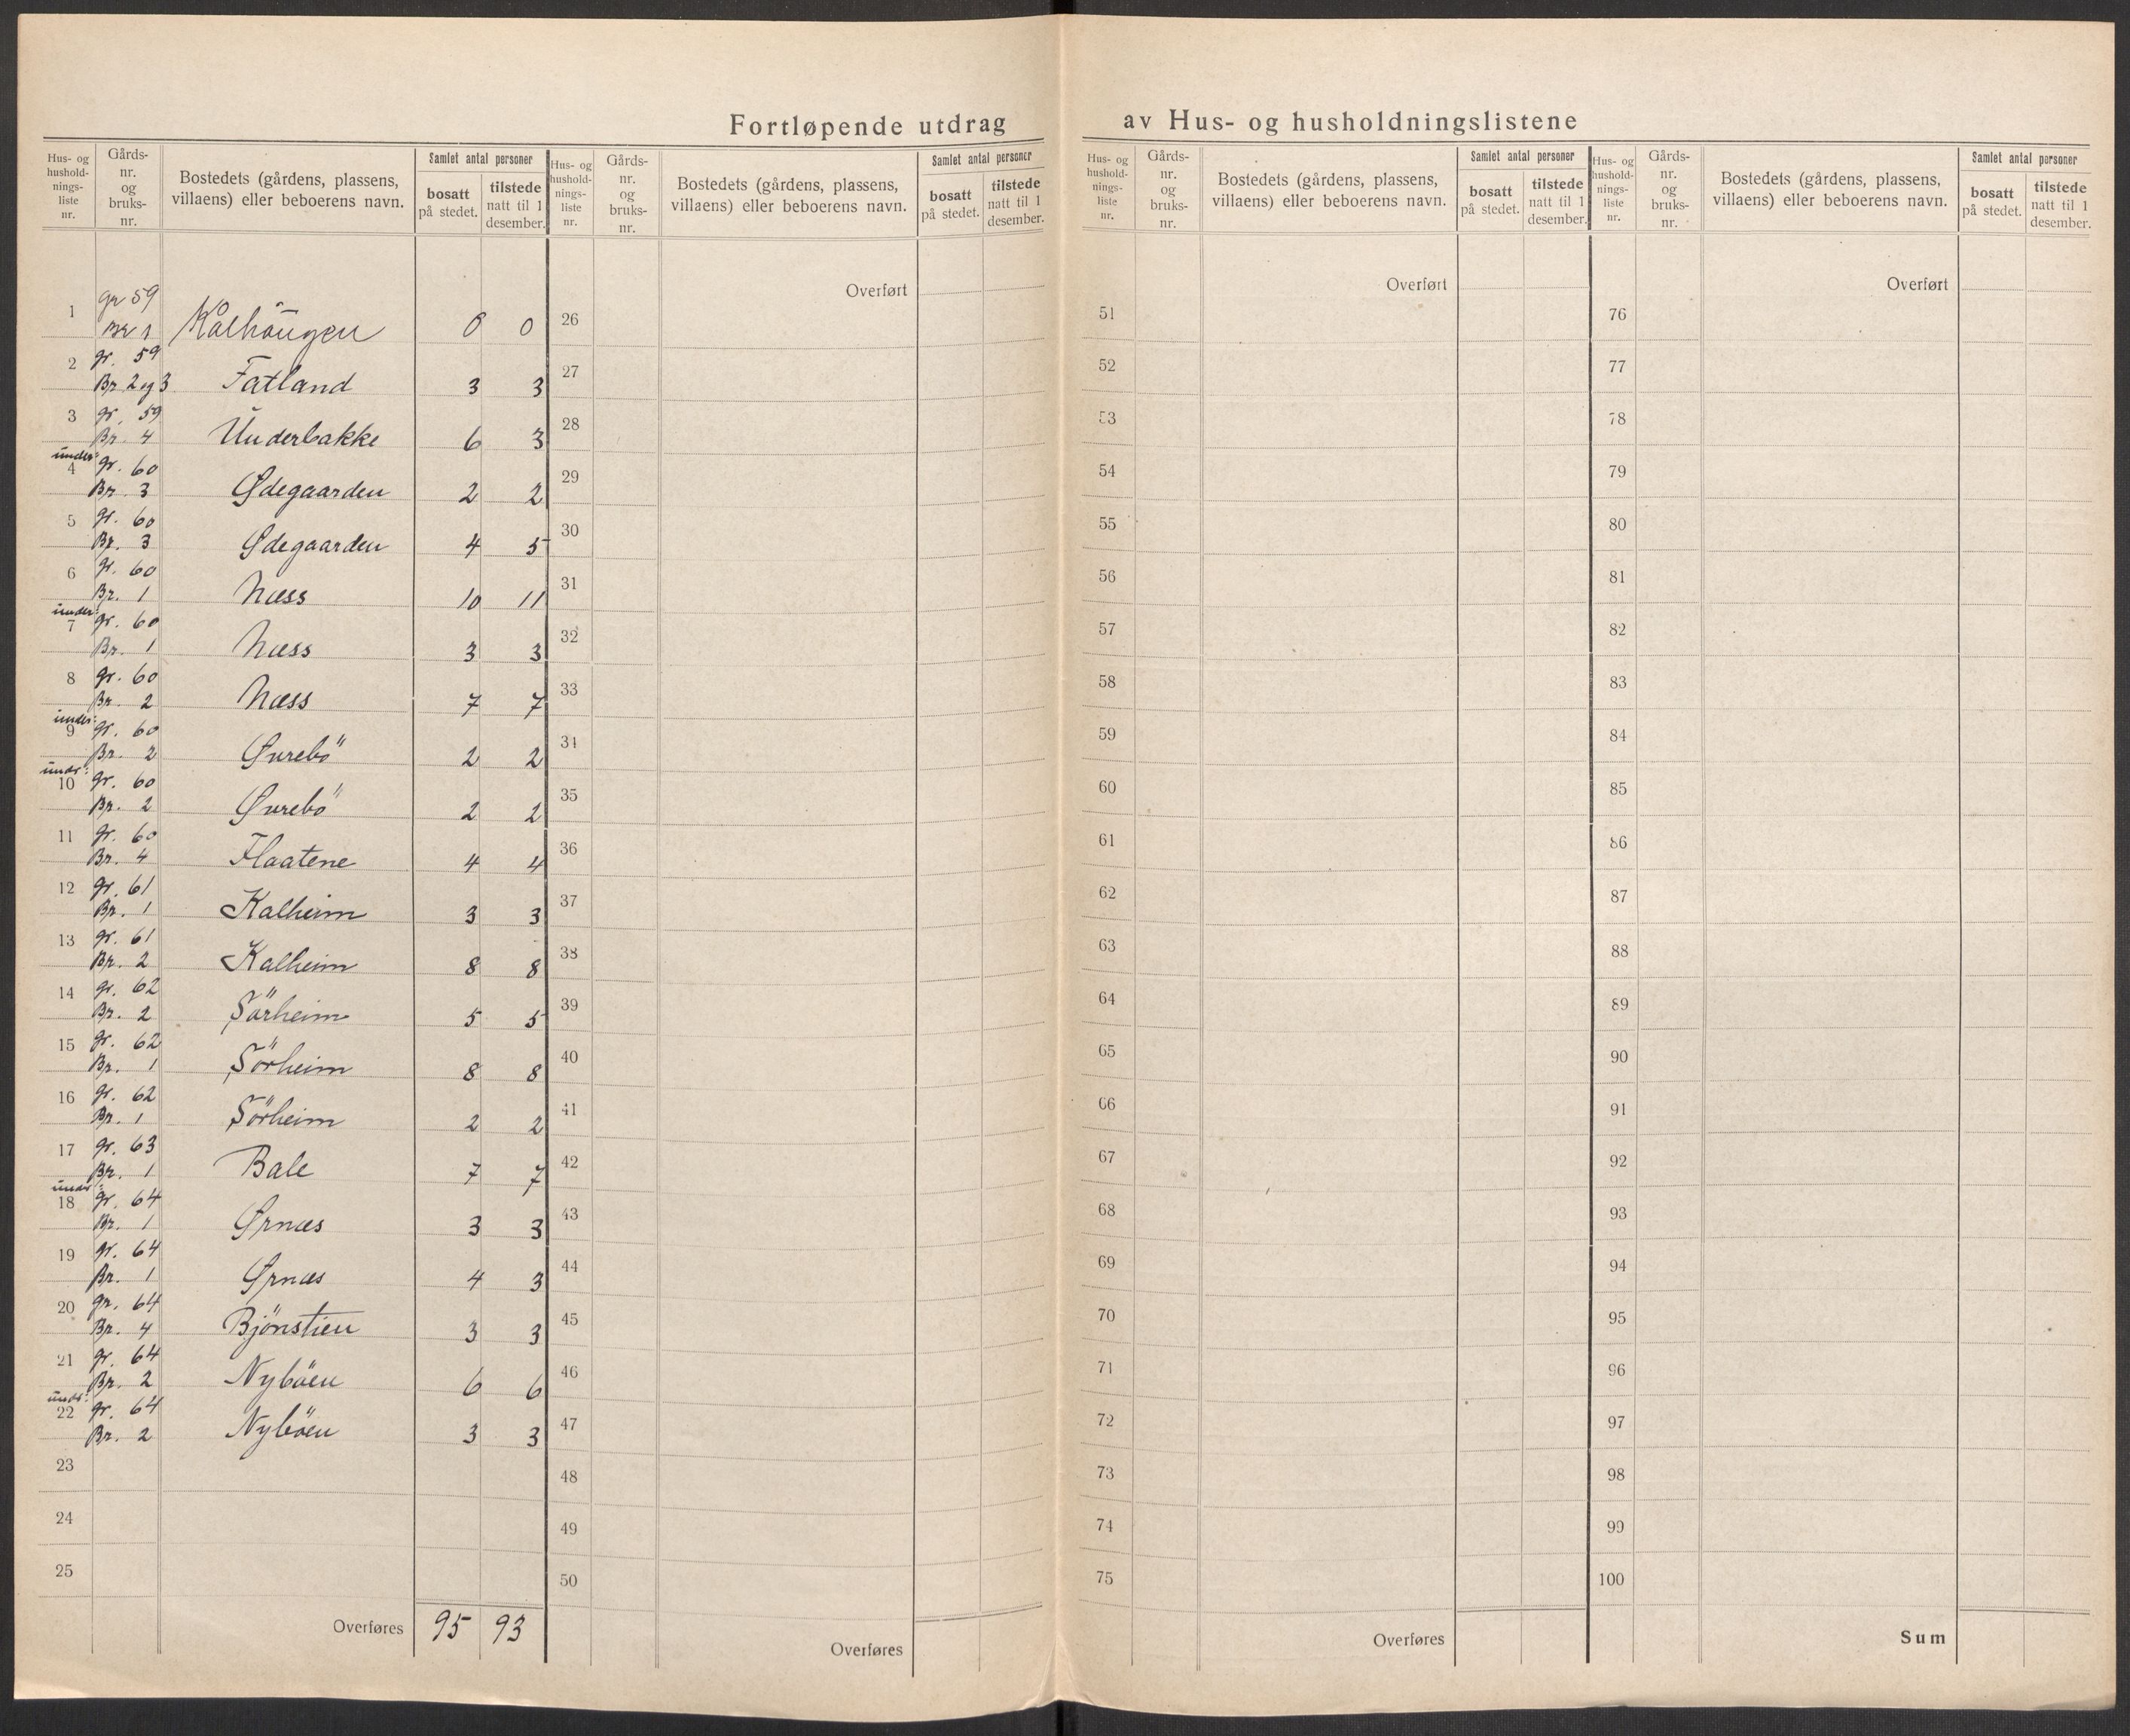 Fortløpende utdrag av Hus- og husholdningslistene
Hus- og
hushold-
nings-
liste
nr.
Gårds-
nr.
og
bruks-
nr.
Bostedets (gårdens, plassens,
villaens) eller beboerens navn.
Samlet antal personer
bosatt
på stedet.
tilstede
natt til 1
desember.
1 gr 59
Br 1 Kalhöugen 0 0
2 gr. 59
Br. 2 og 3 Fatland 3 3
3 gr. 59
Br. 4 Underbakke 6 3
under:
4 gr. 60
Br. 3 Ødegaarden 2 2
5 gr. 60
Br. 3 Ødegaarden 4 5
6 gr. 60
Br. 1 Næss 10 11
under:
7 gr. 60
Br. 1 Næss 3 3
8 gr. 60
Br. 2 Næss 7 7
under:
9 gr. 60
Br. 2 Øvrebö 2 2
undr:
10 gr. 60
Br. 2 Øvrebö 2 2
11 gr. 60
Br. 4 Flaatene 4 4
12 gr. 61
Br. 1 Kalheim 3 3
13 gr. 61
Br. 2 Kalheim 8 8
14 gr. 62
Br. 2 Sörheim 5 5
15 gr. 62
Br. 1 Sörheim 8 8
16 gr. 62
Br. 1 Sörheim 2 2
17 gr. 63
Br. 1 Bale 7 7
undr:
18 gr. 64
Br. 1 Ørnæs 3 3
19 gr. 64
Br. 1 Ørnæs 4 3
20 gr. 64
Br. 4 Bjönstien 3 3
21 gr. 64
Br. 2 Nyböen 6 6
undr:
22 gr. 64
Br. 2 Nyböen 3 3
23
24
25
Overføres 95 93
Hus- og
hushold-
nings-
liste
nr.
Gårds-
nr.
og
bruks-
nr.
Bostedets (gårdens, plassens,
villaens) eller beboerens navn.
Samlet antal personer
bosatt
på stedet.
tilstede
natt til 1
desember.
Overført
26
27
28
29
30
31
32
33
34
35
36
37
38
39
40
41
42
43
44
45
46
47
48
49
50
Overføres
Hus- og
hushold-
nings-
liste
nr.
Gårds-
nr.
og
bruks-
nr.
Bostedets (gårdens, plassens,
villaens) eller beboerens navn.
Samlet antal personer
bosatt
på stedet.
tilstede
natt til 1
desember.
Overført
51
52
53
54
55
56
57
58
59
60
61
62
63
64
65
66
67
68
69
70
71
72
73
74
75
Overføres
Hus- og
hushold-
nings-
liste
nr.
Gårds-
nr.
og
bruks-
nr.
Bostedets (gårdens, plassens,
villaens) eller beboerens navn.
Samlet antal personer
bosatt
på stedet.
tilstede
natt til 1
desember.
Overført
76
77
78
79
80
81
82
83
84
85
86
87
88
89
90
91
92
93
94
95
96
97
98
99
100
Sum